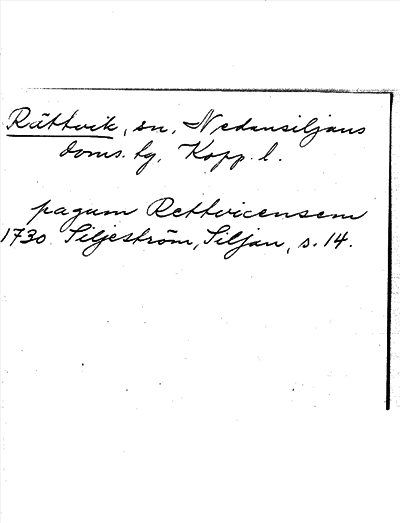 Rättvik, sn, Nedansiljans
doms. lg, Kopp. l.
pagum Rettvicensem
1730. Siljeström, Siljan, s. 14.